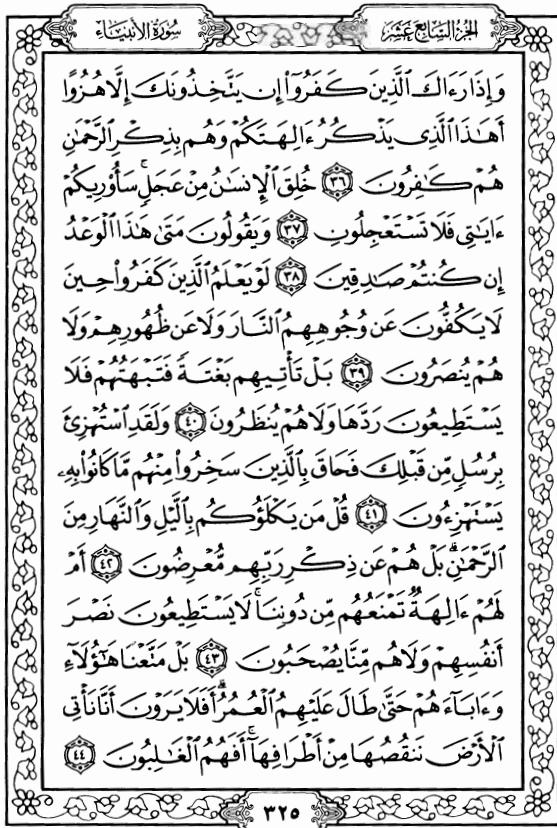 سُورَةُ الأَنبيَاء
الجُزءُ السَّابِعُ عَشَرَ
وَإِذَا رَءَاكَ الَّذِينَ كَفَرُوٓا۟ إِن يَتَّخِذُونَكَ إِلَّا هُزُوًا
أَهَٰذَا الَّذِى يَذْكُرُ ءَالِهَتَكُمْ وَهُم بِذِكْرِ الرَّحْمَٰنِ
هُمْ كَٰفِرُونَ ٣٦ خُلِقَ الْإِنسَٰنُ مِنْ عَجَلٍ ۚ سَأُو۟رِيكُمْ
ءَايَٰتِى فَلَا تَسْتَعْجِلُونِ ٣٧ وَيَقُولُونَ مَتَىٰ هَٰذَا الْوَعْدُ
إِن كُنتُمْ صَٰدِقِينَ ٣٨ لَوْ يَعْلَمُ الَّذِينَ كَفَرُوا۟ حِينَ
لَا يَكُفُّونَ عَن وُجُوهِهِمُ النَّارَ وَلَا عَن ظُهُورِهِمْ وَلَا
هُمْ يُنصَرُونَ ٣٩ بَلْ تَأْتِيهِم بَغْتَةً فَتَبْهَتُهُمْ فَلَا
يَسْتَطِيعُونَ رَدَّهَا وَلَا هُمْ يُنظَرُونَ ٤٠ وَلَقَدِ اسْتُهْزِئَ
بِرُسُلٍ مِّن قَبْلِكَ فَحَاقَ بِالَّذِينَ سَخِرُوا۟ مِنْهُم مَّا كَانُوا۟ بِهِۦ
يَسْتَهْزِءُونَ ٤١ قُلْ مَن يَكْلَؤُكُم بِالَّيْلِ وَالنَّهَارِ مِنَ
الرَّحْمَٰنِ ۗ بَلْ هُمْ عَن ذِكْرِ رَبِّهِم مُّعْرِضُونَ ٤٢ أَمْ
لَهُمْ ءَالِهَةٌ تَمْنَعُهُم مِّن دُونِنَا ۚ لَا يَسْتَطِيعُونَ نَصْرَ
أَنفُسِهِمْ وَلَا هُم مِّنَّا يُصْحَبُونَ ٤٣ بَلْ مَتَّعْنَا هَٰٓؤُلَآءِ
وَءَابَآءَهُمْ حَتَّىٰ طَالَ عَلَيْهِمُ الْعُمُرُ ۗ أَفَلَا يَرَوْنَ أَنَّا نَأْتِى
الْأَرْضَ نَنقُصُهَا مِنْ أَطْرَافِهَآ ۚ أَفَهُمُ الْغَٰلِبُونَ ٤٤
٣٢٥